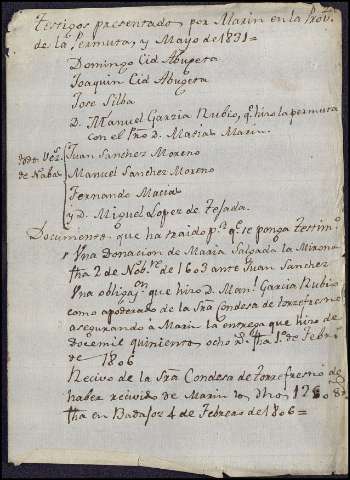 Testigos presentados por Marin en la Prov.ª
de la Permuta, y Mayo de 1831=
Domingo Cid Abugera
Joaquin Cid Abugera
Jose Silba
D. Manuel Garzia Rubio, q.e hizo la permuta
con el Pro D. Macias Marin.
todos Vez.s
de Naba
Juan Sanchez Moreno
Manuel Sanchez Moreno
Fernando Macias
y D. Miguel Lopez de Tejada.
Documentos q.e ha traido p.a q.e se ponga testim.o
Una Donacion de Maria Salgada la Mirona
fha 2 de Nob.re de 1603 ante Juan Sanchez
Una obligaz.on que hizo D. Man.l Garcia Rubio
como apoderado de la Sra Condesa de torrefresno
asegurando à Marin la entrega que hizo de
doce mil quinientos ocho r.s fha 1.o de Febr.o
de 1806
Recivo de la Sra Condesa de torrefresno de
haber recivido de Marin los dhos 12508 r.s
fha en Badajoz 4 de Febrero de 1806=